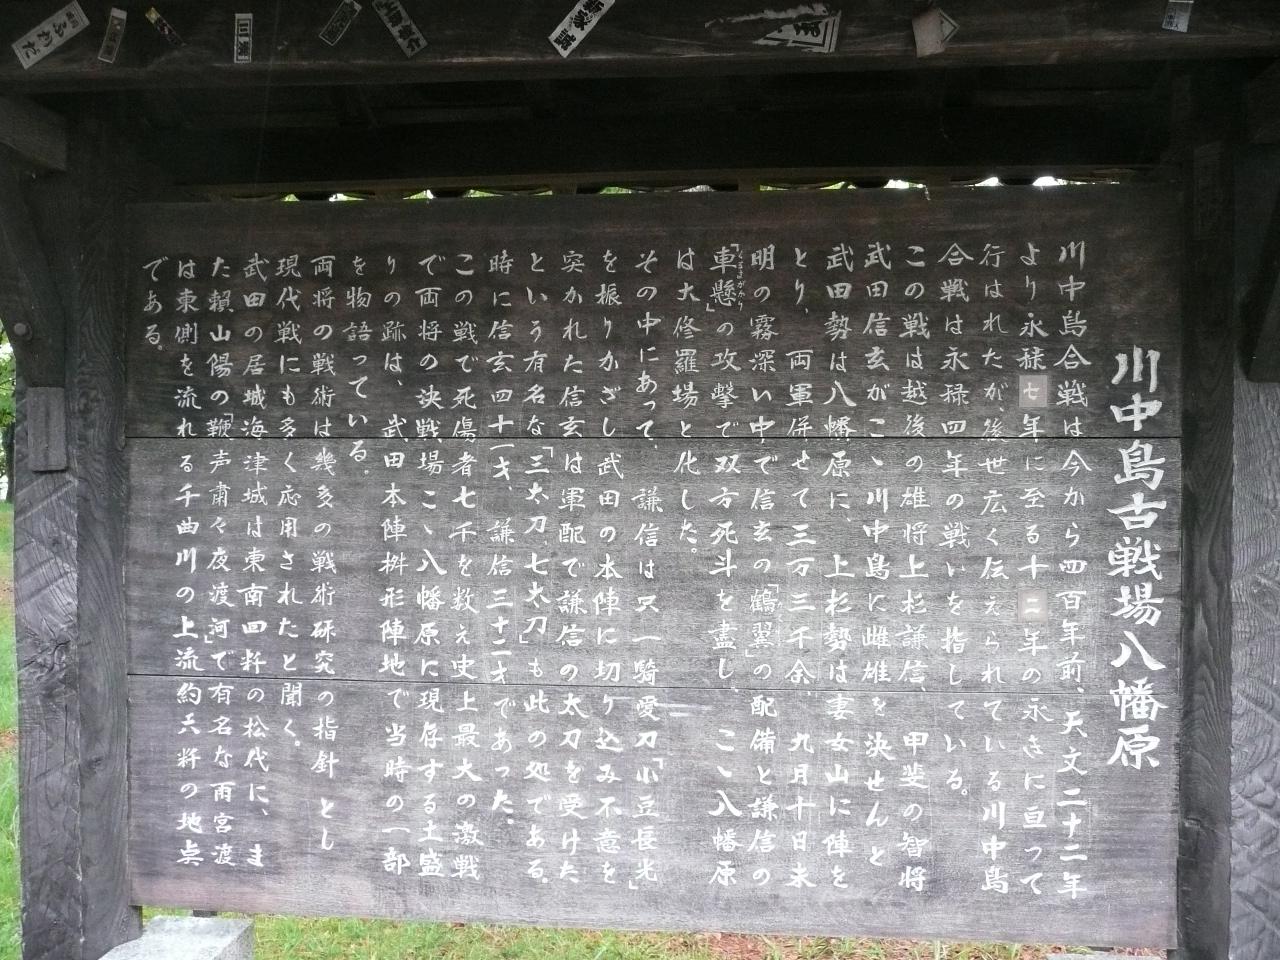 川中島古戦場八幡原
川中島合戦は今から四百年前、天文二十二年
より永禄七年に至る十二年の永きに亘って
行はれたが、後世広く伝えられている川中島
合戦は永禄四年の戦いを指している。
この戦は越後の雄将上杉謙信、甲斐の智将
武田信玄がこゝ川中島に雌雄を決せんと
武田勢は八幡原に、上杉勢は妻女山に陣を
とり、両軍併せて三万三千余、九月十日未
明の霧深い中で信玄の「鶴翼」の配備と謙信の
「車懸」の攻撃で双方死斗を盡し、こゝ八幡原
くるまがかり
は大修羅場と化した。
その中にあって、謙信は只一騎愛刀「小豆長光」
を振りかざし武田の本陣に切り込み不意を
突かれた信玄は軍配で謙信の太刀を受けた
という有名な「三太刀、七太刀」も此の処である。
時に信玄四十一才、謙信三十二才であった。
この戦で死傷者七千を数え史上最大の激戦
で両将の決戦場こゝ八幡原に現存する土盛
りの跡は、武田本陣桝形陣地で当時の一部
を物語っている。
両将の戦術は幾多の戦術研究の指針とし
現代戦にも多く応用されたと聞く。
武田の居城海津城は東南四粁の松代に、ま
た頼山陽の「鞭声粛々夜渡河」で有名な雨宮渡
は東側を流れる千曲川の上流約六粁の地点
である。